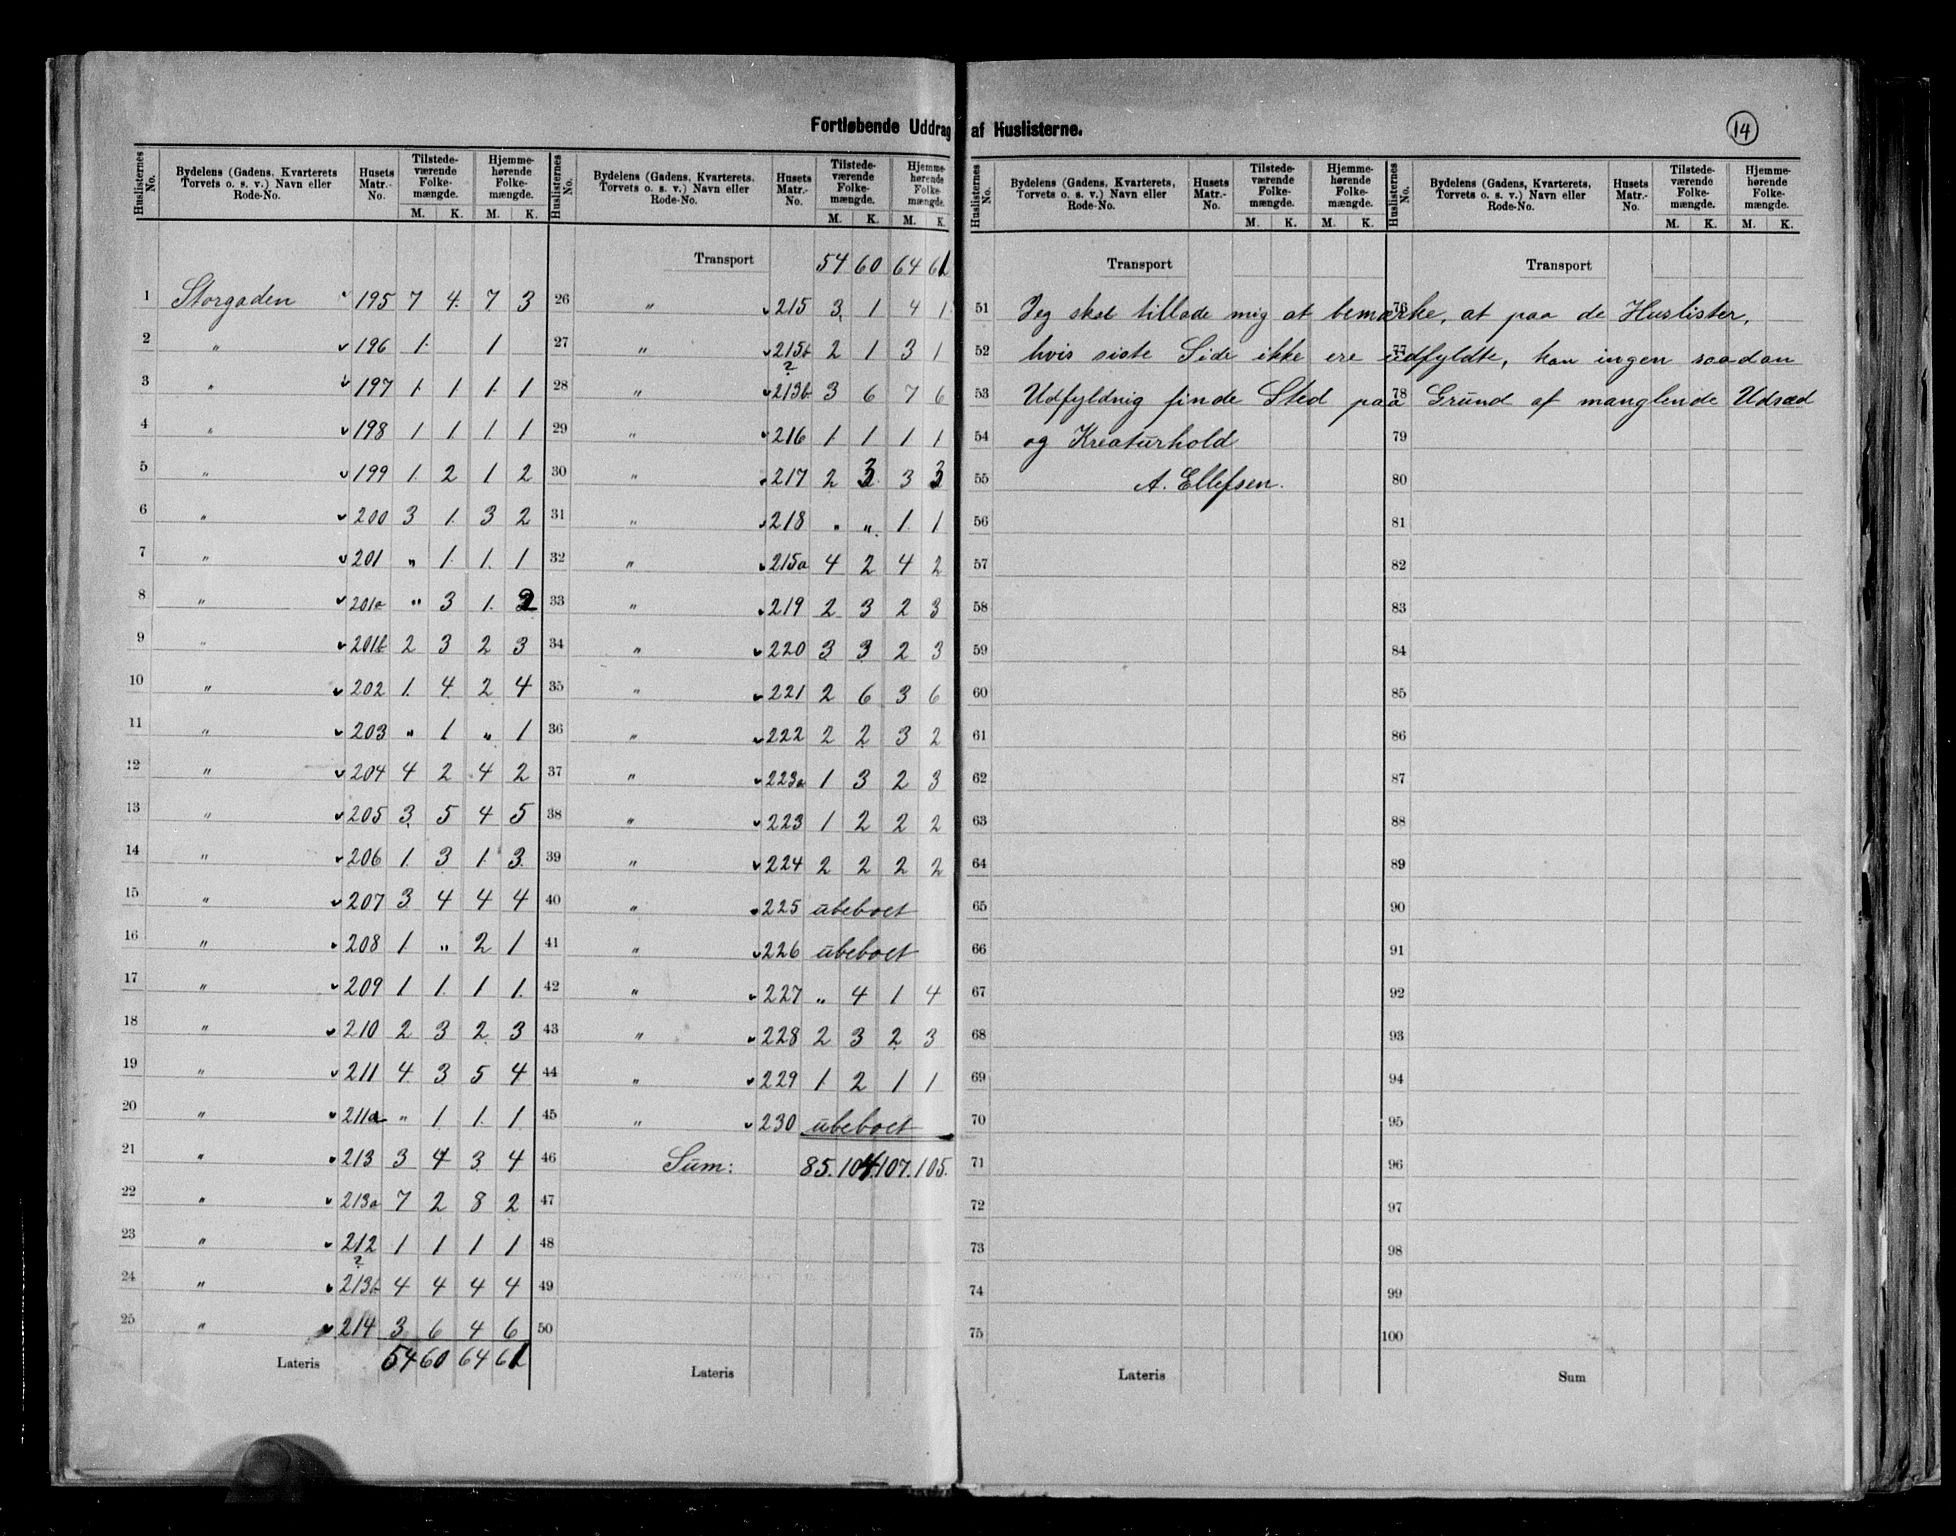 Fortløbende Uddrag af Huslisterne.
14
Huslisternes No. Bydelens (Gadens, Kvarterets Torvets o. s. v.) Navn eller Rode-No. Husets Matr.-No. Tilstedeværende Folkemængde. M. K. Hjemmehørende Folkemængde. M. K.
1 Storgaden 195 7 4 7 3
2 " 196 1 1
3 " 197 1 1 1 1
4 " 198 1 1 1 1
5 " 199 1 2 1 2
6 " 200 3 1 3 2
7 " 201 " 1 1 1
8 " 201a " 3 1 2
9 " 201b 2 3 2 3
10 " 202 1 4 2 4
11 " 203 " 1 " 1
12 " 204 4 2 4 2
13 " 205 3 5 4 5
14 " 206 1 3 1 3
15 " 207 3 4 4 4
16 " 208 1 " 2 1
17 " 209 1 1 1 1
18 " 210 2 3 2 3
19 " 211 4 3 5 4
20 " 211a " 1 1 1
21 " 213 3 4 3 4
22 " 213a 7 2 8 2
23 " 212 1 1 1 1
?
24 " 213b 4 4 4 4
25 " 214 3 6 4 6
Lateris 54 60 64 61
Huslisternes No. Bydelens (Gadens, Kvarterets, Torvets o. s. v.) Navn eller Rode-No. Husets Matr.-No. Tilstedeværende Folkemængde. M. K. Hjemmehørende Folkemængde. M. K.
Transport 54 60 64 61
26 " 215 3 1 4 1
27 " 215b 2 1 3 1
?
28 " 213b 3 6 7 6
29 " 216 1 1 1 1
30 " 217 2 3 3 3
31 " 218 " " 1 1
32 " 215a 4 2 4 2
33 " 219 2 3 2 3
34 " 220 3 3 2 3
35 " 221 2 6 3 6
36 " 222 2 2 3 2
37 " 223a 1 3 2 3
38 " 223 1 2 2 2
39 " 224 2 2 2 2
40 " 225 ubeboet
41 " 226 ubeboet
42 " 227 " 4 1 4
43 " 228 2 3 2 3
44 " 229 1 2 1 1
45 " 230 ubeboet
46 Sum: 85. 104. 107. 105.
47
48
49
50
Lateris
Huslisternes No. Bydelens (Gadens, Kvarterets, Torvets o. s. v.) Navn eller Rode-No. Husets Matr.-No. Tilstedeværende Folkemængde. M. K. Hjemmehørende Folkemængde. M. K.
Huslisternes No. Bydelens (Gadens, Kvarterets, Torvets o. s. v.) Navn eller Rode-No. Husets Matr.-No. Tilstedeværende Folkemængde. M. K. Hjemmehørende Folkemængde. M. K.
Transport Transport
51 Jeg skal tillade mig at bemærke, at paa de Huslister, 76
52 hvis siste Side ikke ere udfyldte, kan ingen saadan 77
53 Udfyldnig finde Sted paa Grund af manglende Udsæd 78
54 og Kreaturhold 79
55 A. Ellefsen. 80
56 81
57 82
58 83
59 84
60 85
61 86
62 87
63 88
64 89
65 90
66 91
67 92
68 93
69 94
70 95
71 96
72 97
73 98
74 99
75 100
Lateris Sum